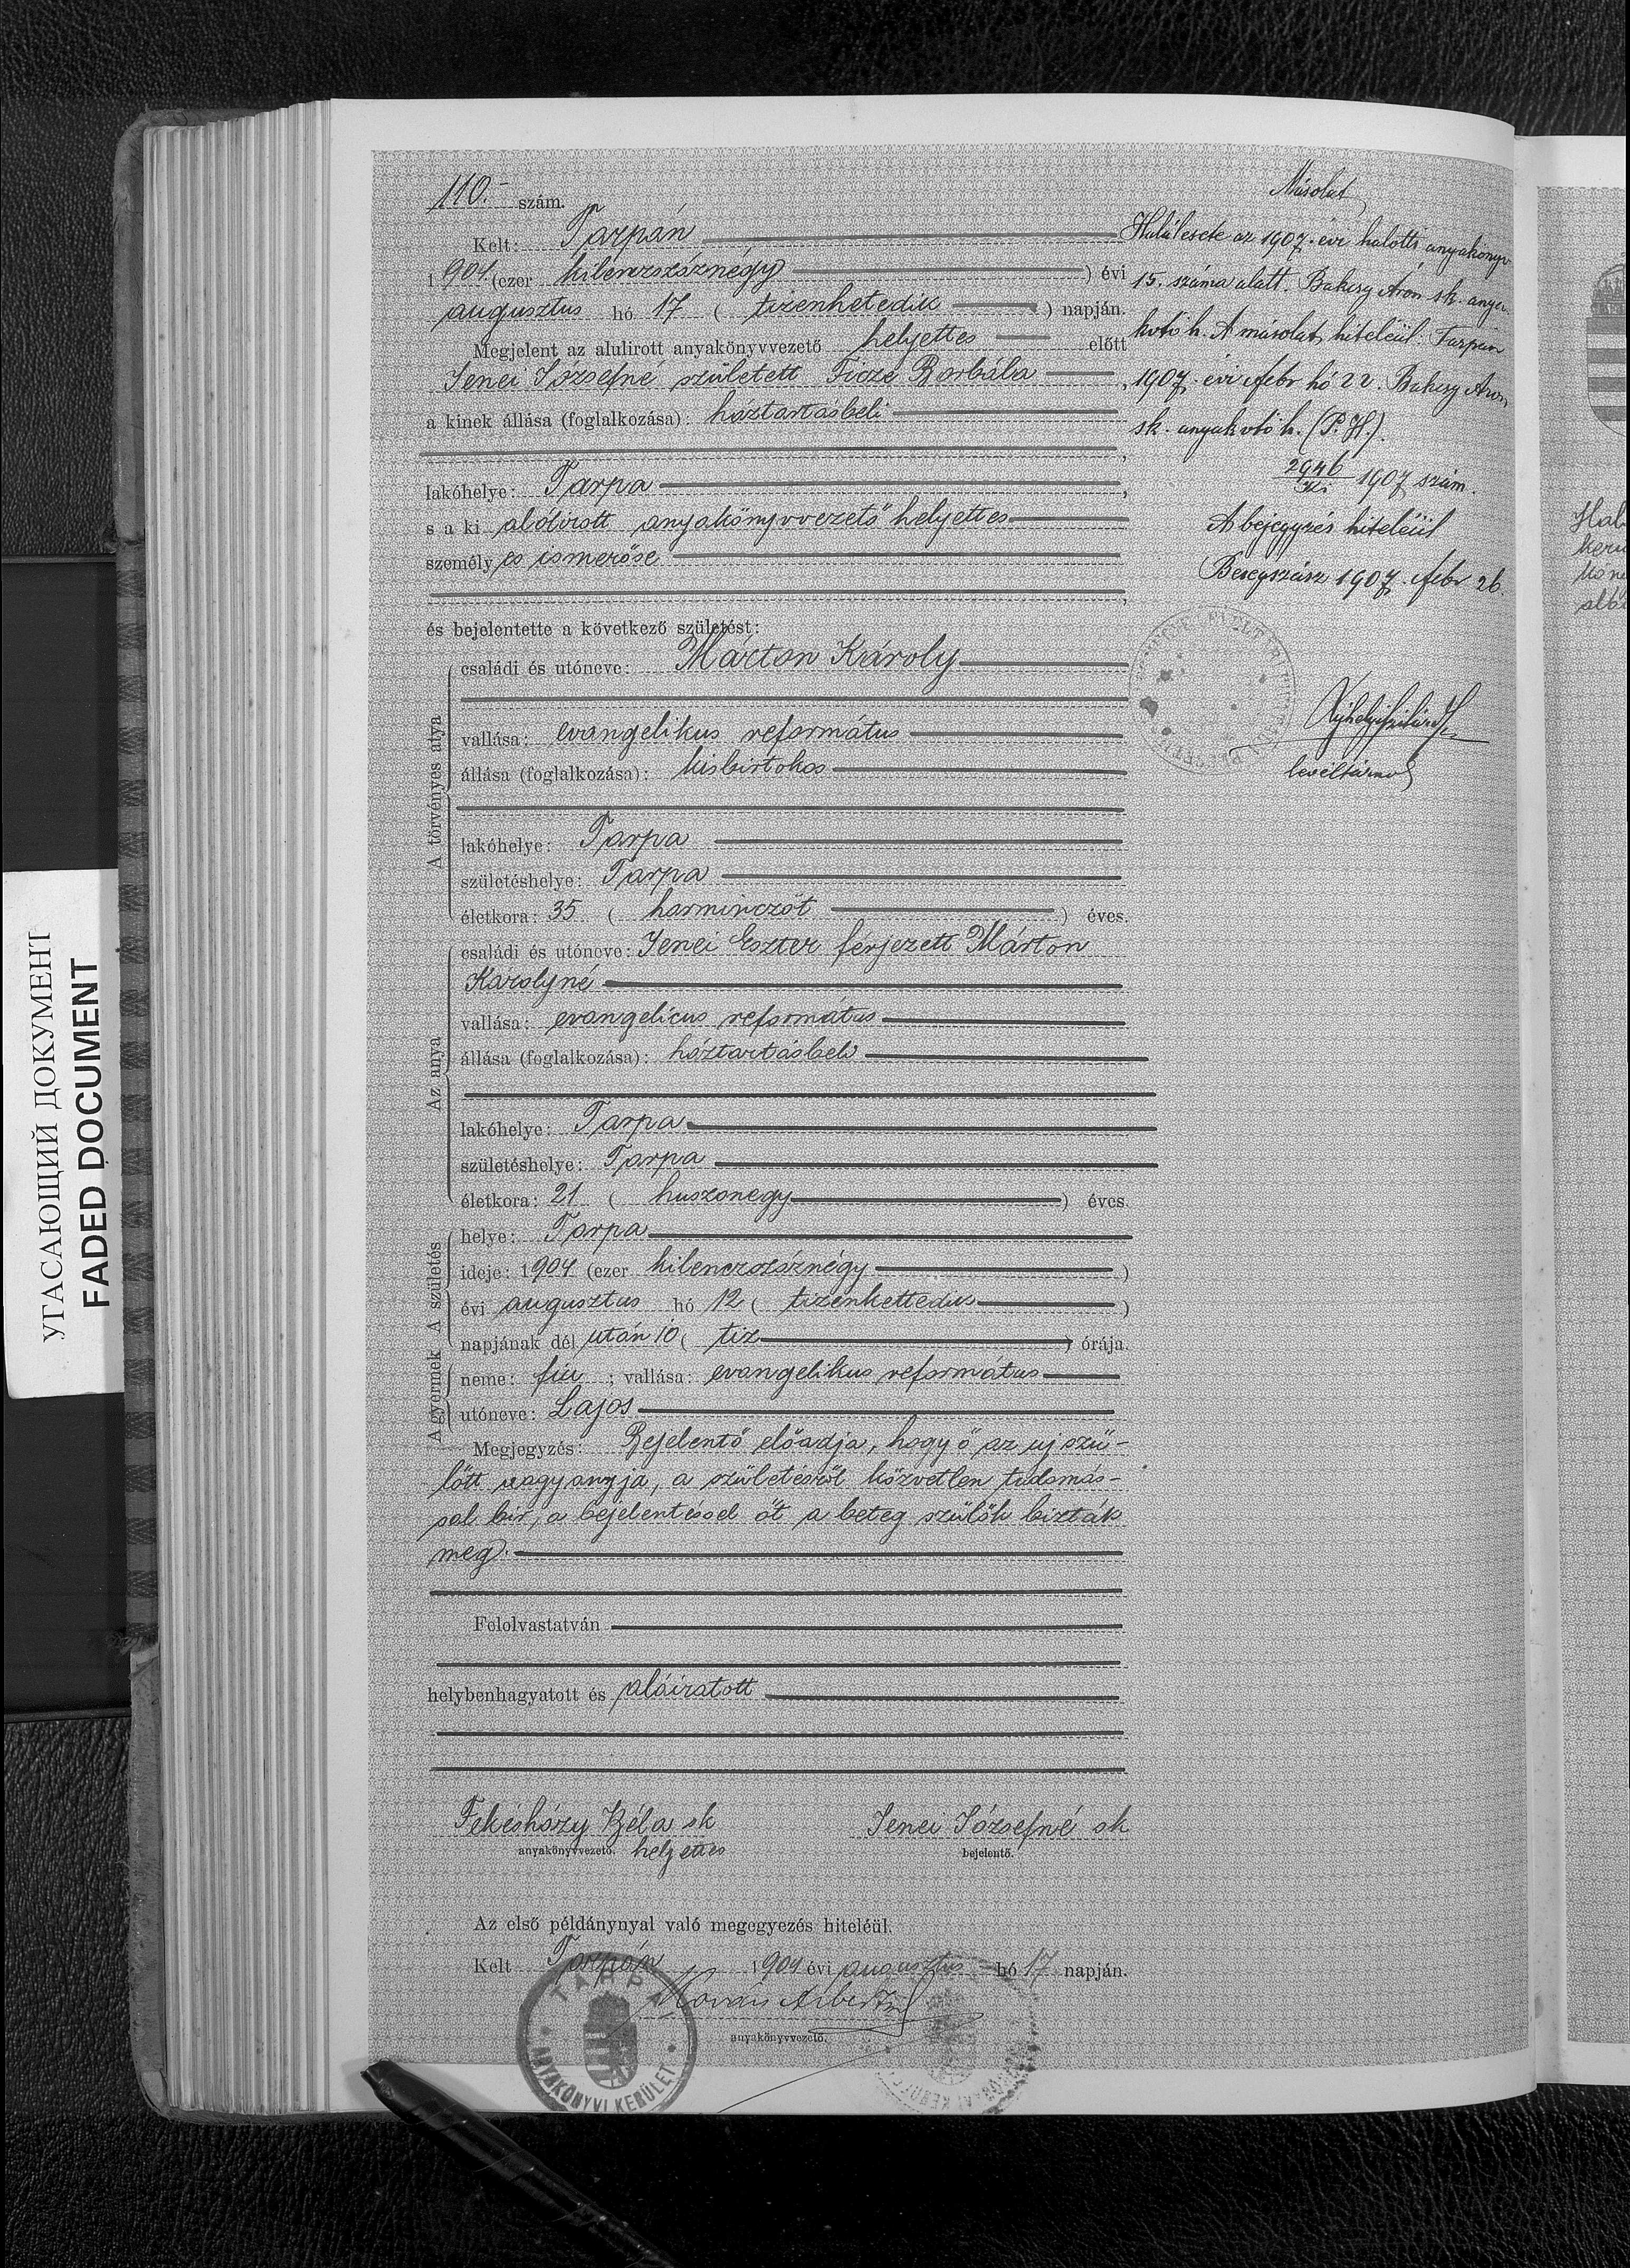 110. szám.
Kelt: Tarpán
1904 (ezer kilenczszáznégy) évi
augusztus hó 17 (tizenhetedik) napján.
Megjelent az alulirott anyakönyvvezető helyettes előtt
Jenei Józsefné született Ficze Borbála,
a kinek állása (foglalkozása): háztartásbeli
,
lakóhelye: Tarpa,
s a ki alólirott anyakönyvvezető helyettes
személyes ismerőse
,
és bejelentette a következő születést:
A törvényes atya
családi és utóneve: Márton Károly
vallása: evangelikus református
állása (foglalkozása): kisbirtokos
lakóhelye: Tarpa
születéshelye: Tarpa
életkora: 35 (harminczöt) éves.
Az anya
családi és utóneve: Jenei Eszter férjezett Márton
Károlyné
vallása: evangelicus református
állása (foglalkozása): háztartásbeli
lakóhelye: Tarpa
születéshelye: Tarpa
életkora: 21 (huszonegy) éves.
A születés
helye: Tarpa
ideje: 1904 (ezer kilenczszáznégy)
évi augusztus hó 12 (tizenkettedik)
napjának dél után 10 (tiz) órája.
A gyermek
neme: fiu; vallása: evangelikus református
utóneve: Lajos
Megjegyzés: Bejelentő előadja, hogy ő az uj szü-
lött nagyanyja, a születésről közvetlen tudomás-
sal bir, a bejelentéssel őt a beteg szülők bizták
meg.
Felolvastatván
helybenhagyatott és aláiratott
Fekésházy Béla sk
anyakönyvvezető. helyettes
Jenei Józsefné sk
bejelentő.
Az első példánynyal való megegyezés hiteléül.
Kelt Tarpán 1904 évi augusztus hó 17 napján.
anyakönyvvezető.
TARPA
ANYAKÖNYVI KERÜLET
Másolat
Halálesete az 1907. évi halotti anyakönyv
15. száma alatt. Bakcsy Áron sk. anya-
kvtő h. A másolat hiteléül. Tarpán
1907. évi febr hó 22. Bakcsy Áron
sk. anyakvtő h. (P. H.).
2946/Ki 1907 szám.
A bejegyzés hiteléül
Beregszász 1907. febr 26.
levéltárnok
УГАСАЮЩИЙ ДОКУМЕНТ
FADED DOCUMENT